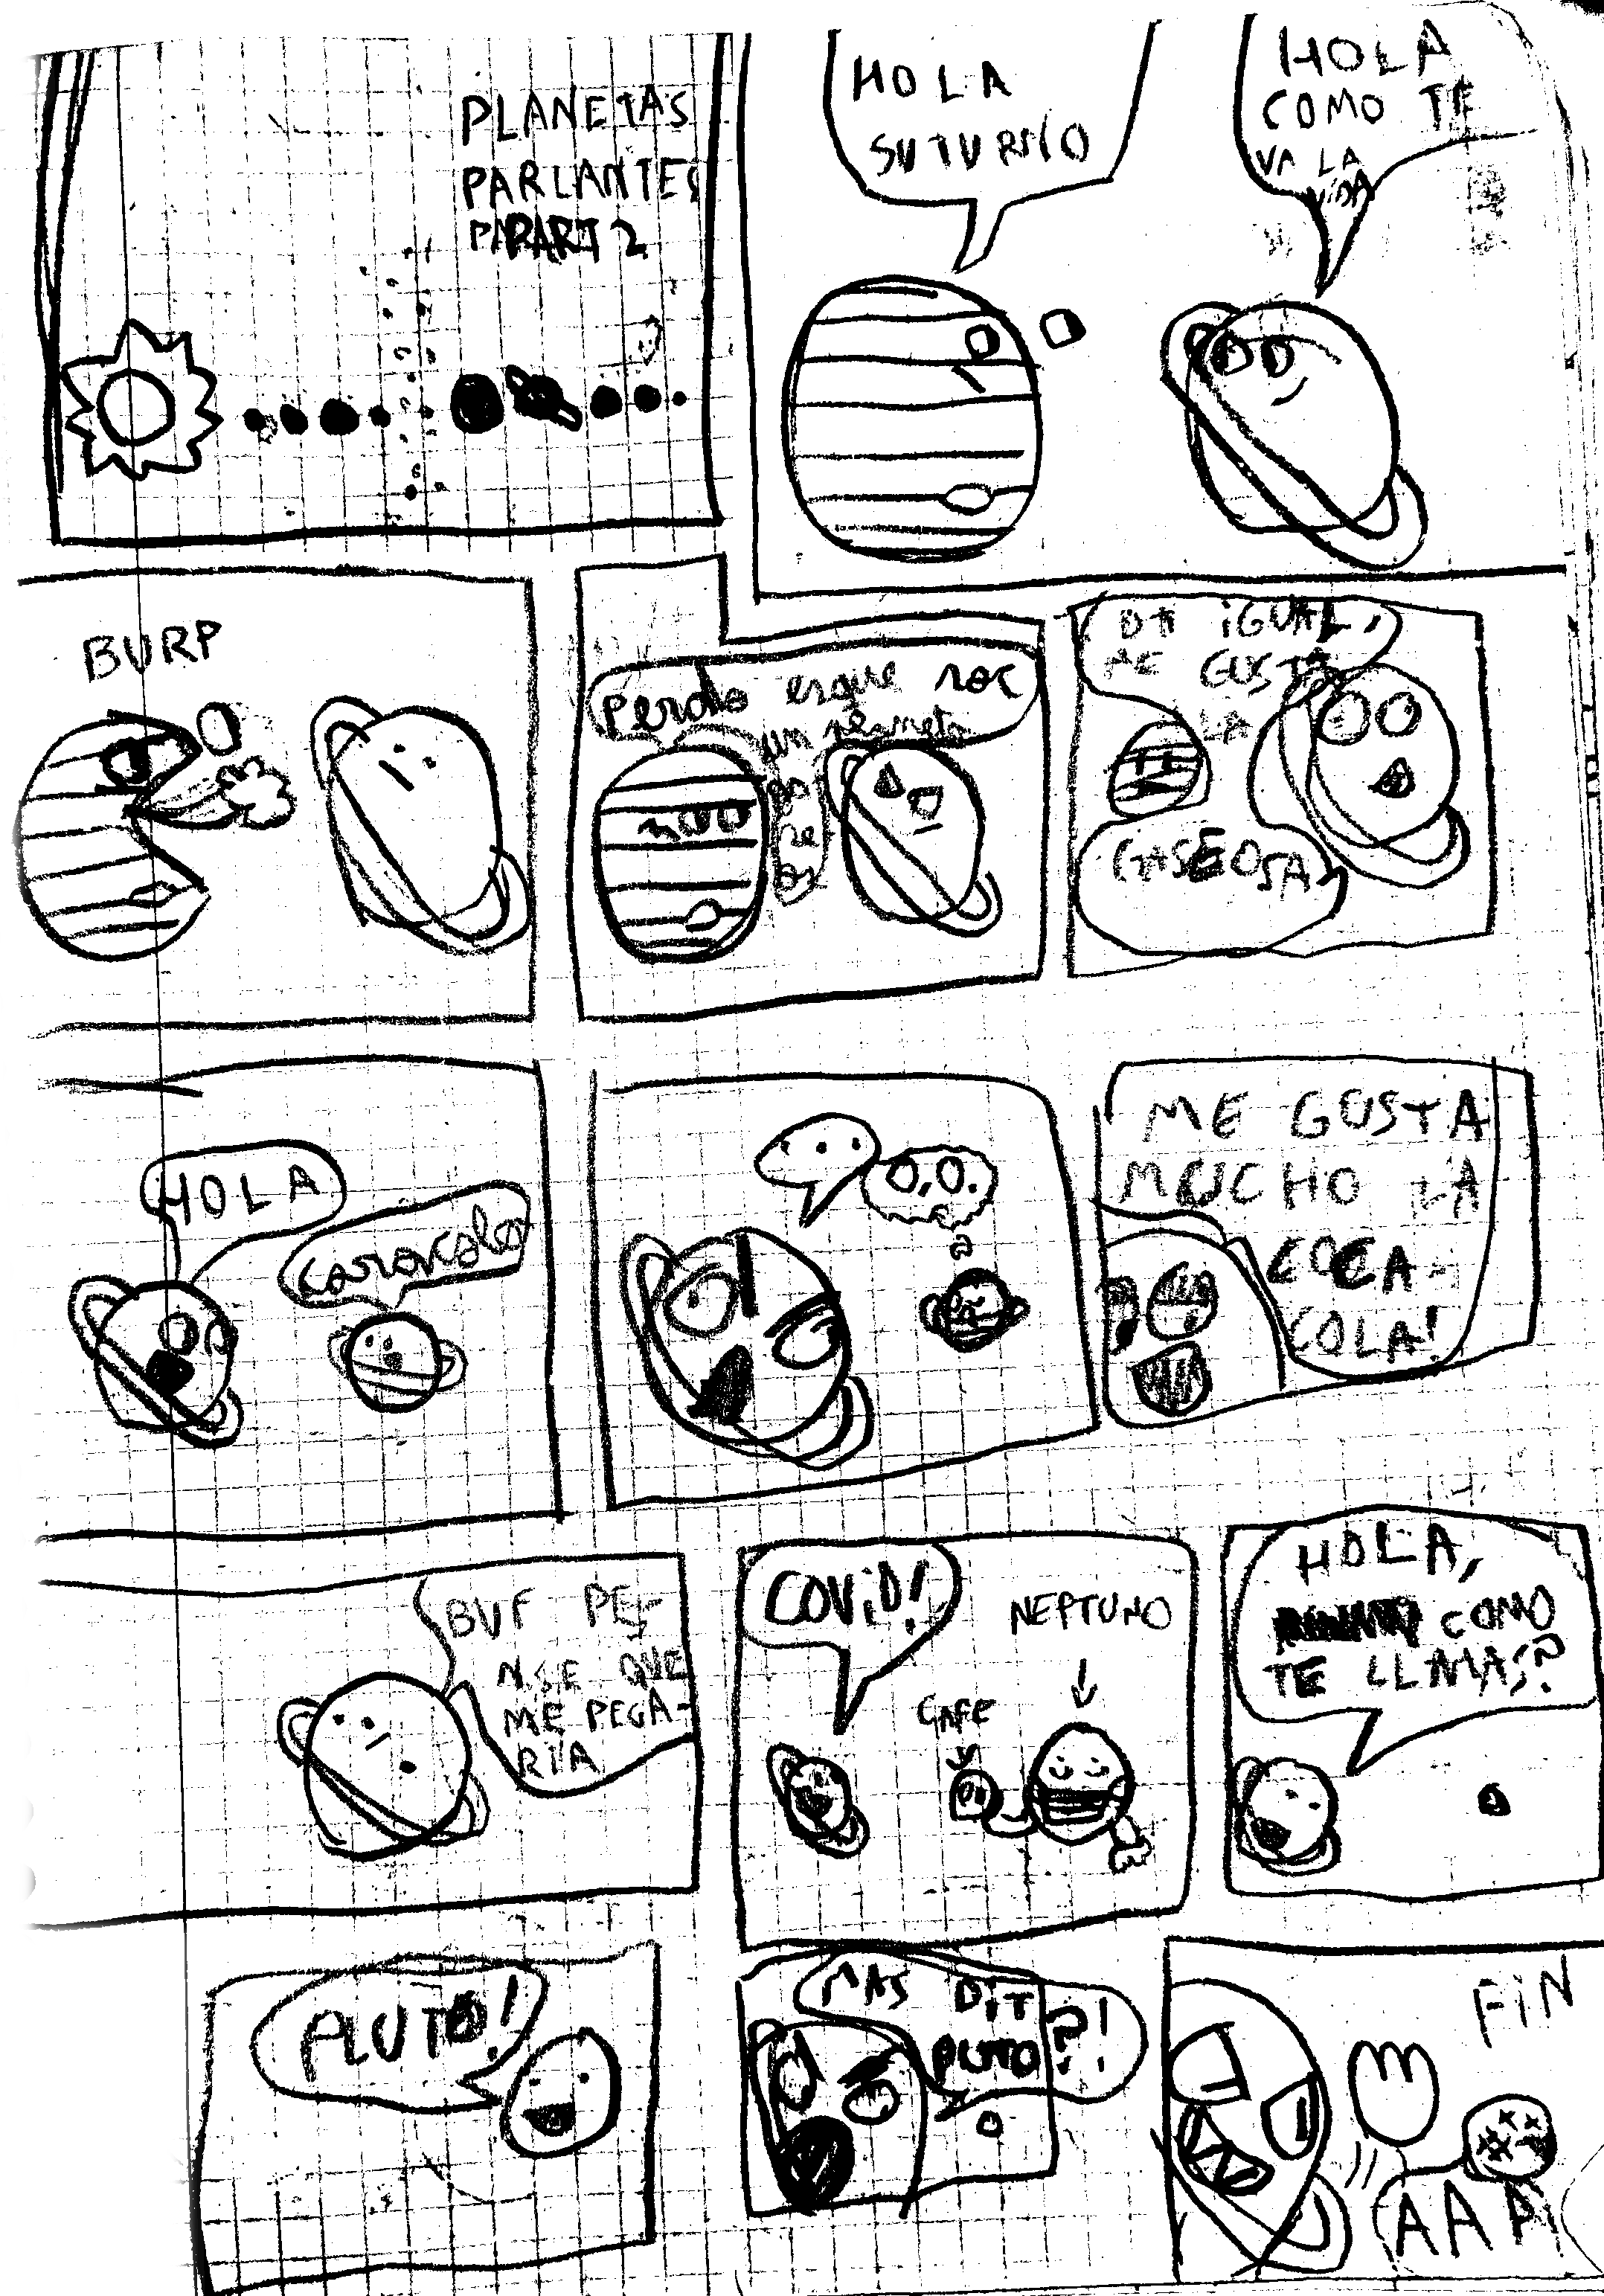 PLANETAS
PARLANTES
PART 2
HOLA
SUTURNO
HOLA
COMO TE
VA LA
VIDA
BURP
Perdo esque soc
un planeta
DA IGUAL,
ME GUSTA
LA
GASEOSA
HOLA
caracoles
...
O,O.
ME GUSTA
MUCHO LA
COCA-
COLA!
BUF PE-
NSE QUE
ME PEGA-
RIA
COVID!
NEPTUNO
CAFE
HOLA,
COMO
TE LLMAS?
PLUTO!
MAS DIT
PUTO?!
FIN
AAA